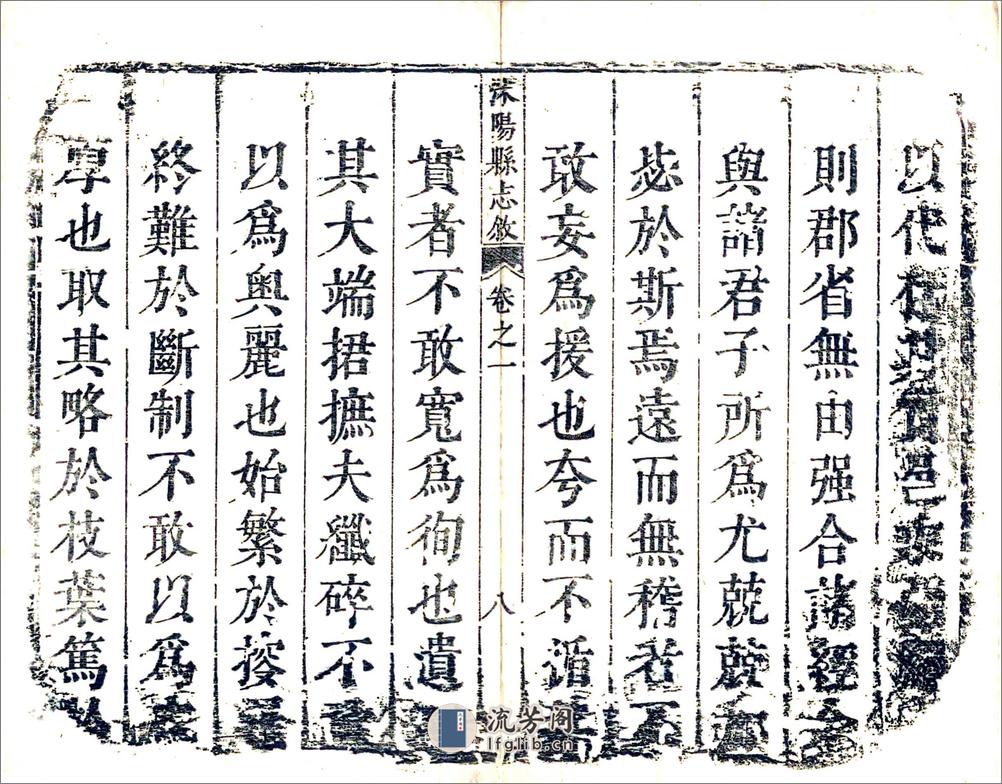 以代
則郡省無由强合諸經今
與諸君子所爲尤兢兢加
毖於斯焉遠而無稽者不
敢妄爲援也夸而不循
沭陽縣志敘 卷之一 八
實者不敢寬爲徇也遺
其大端捃摭夫纖碎不
以爲奥麗也始繁於搜
終難於斷制不敢以爲
卓也取其略於枝葉篤
流芳阁
lfglib.cn